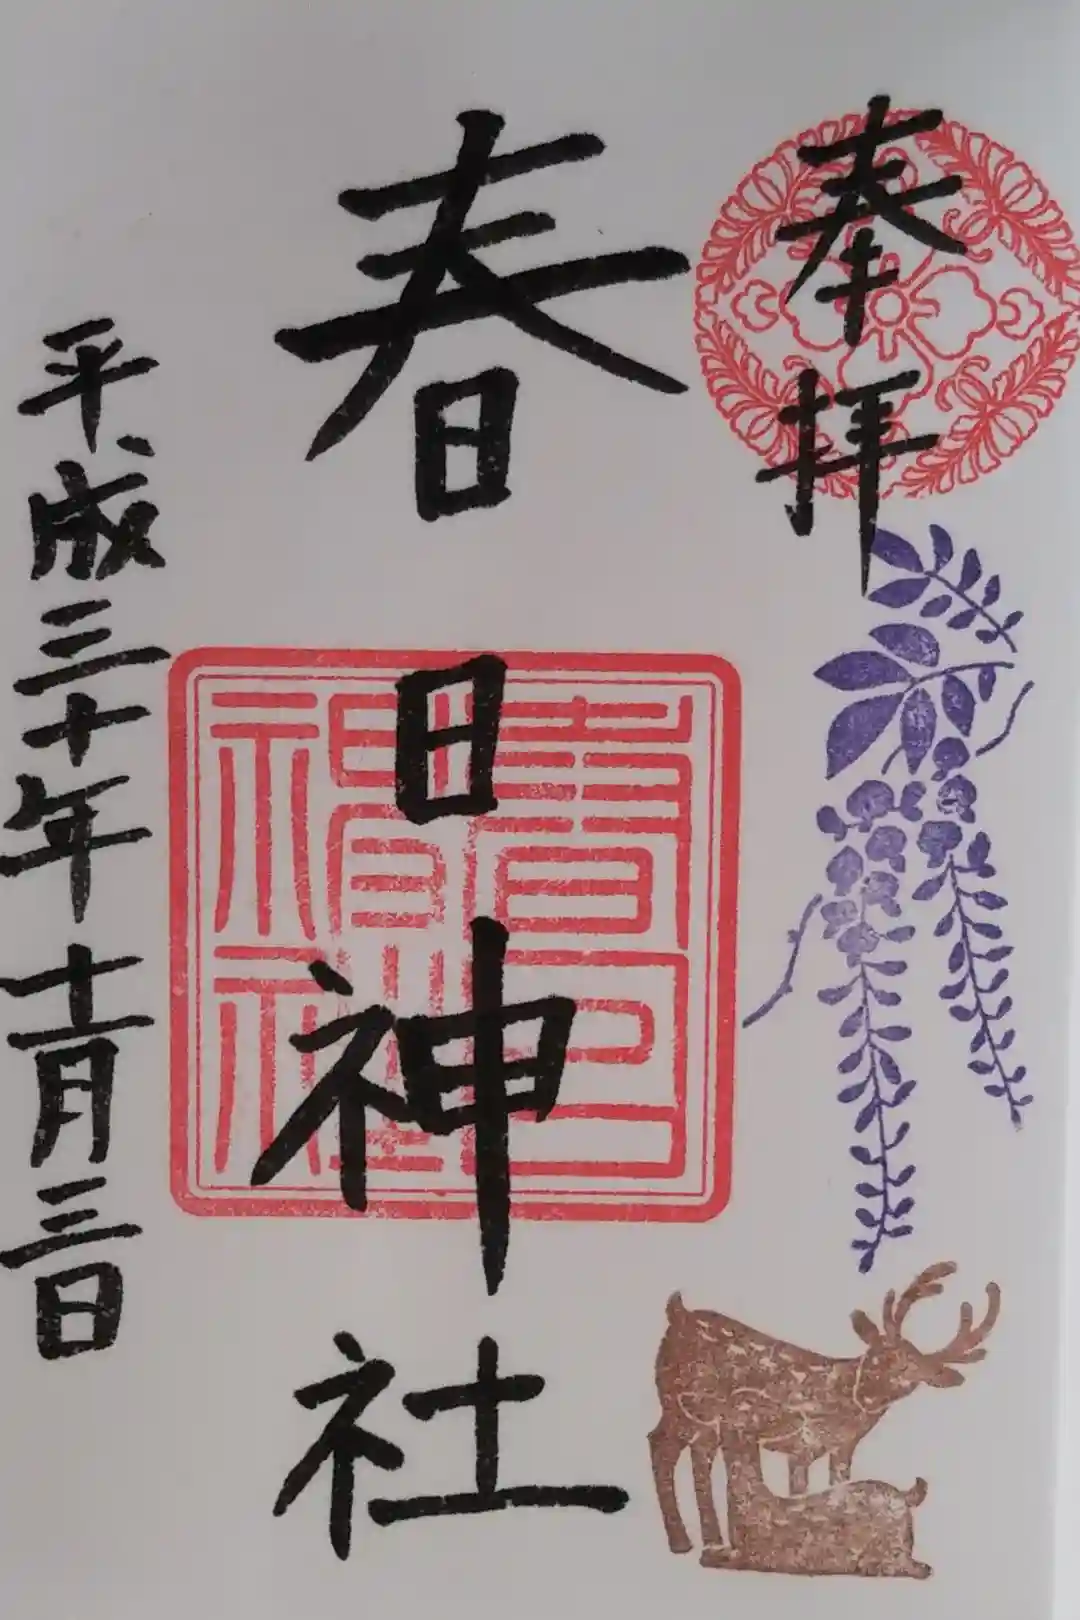 奉拝
春日神社
春日
神社
平成三十年十一月三日